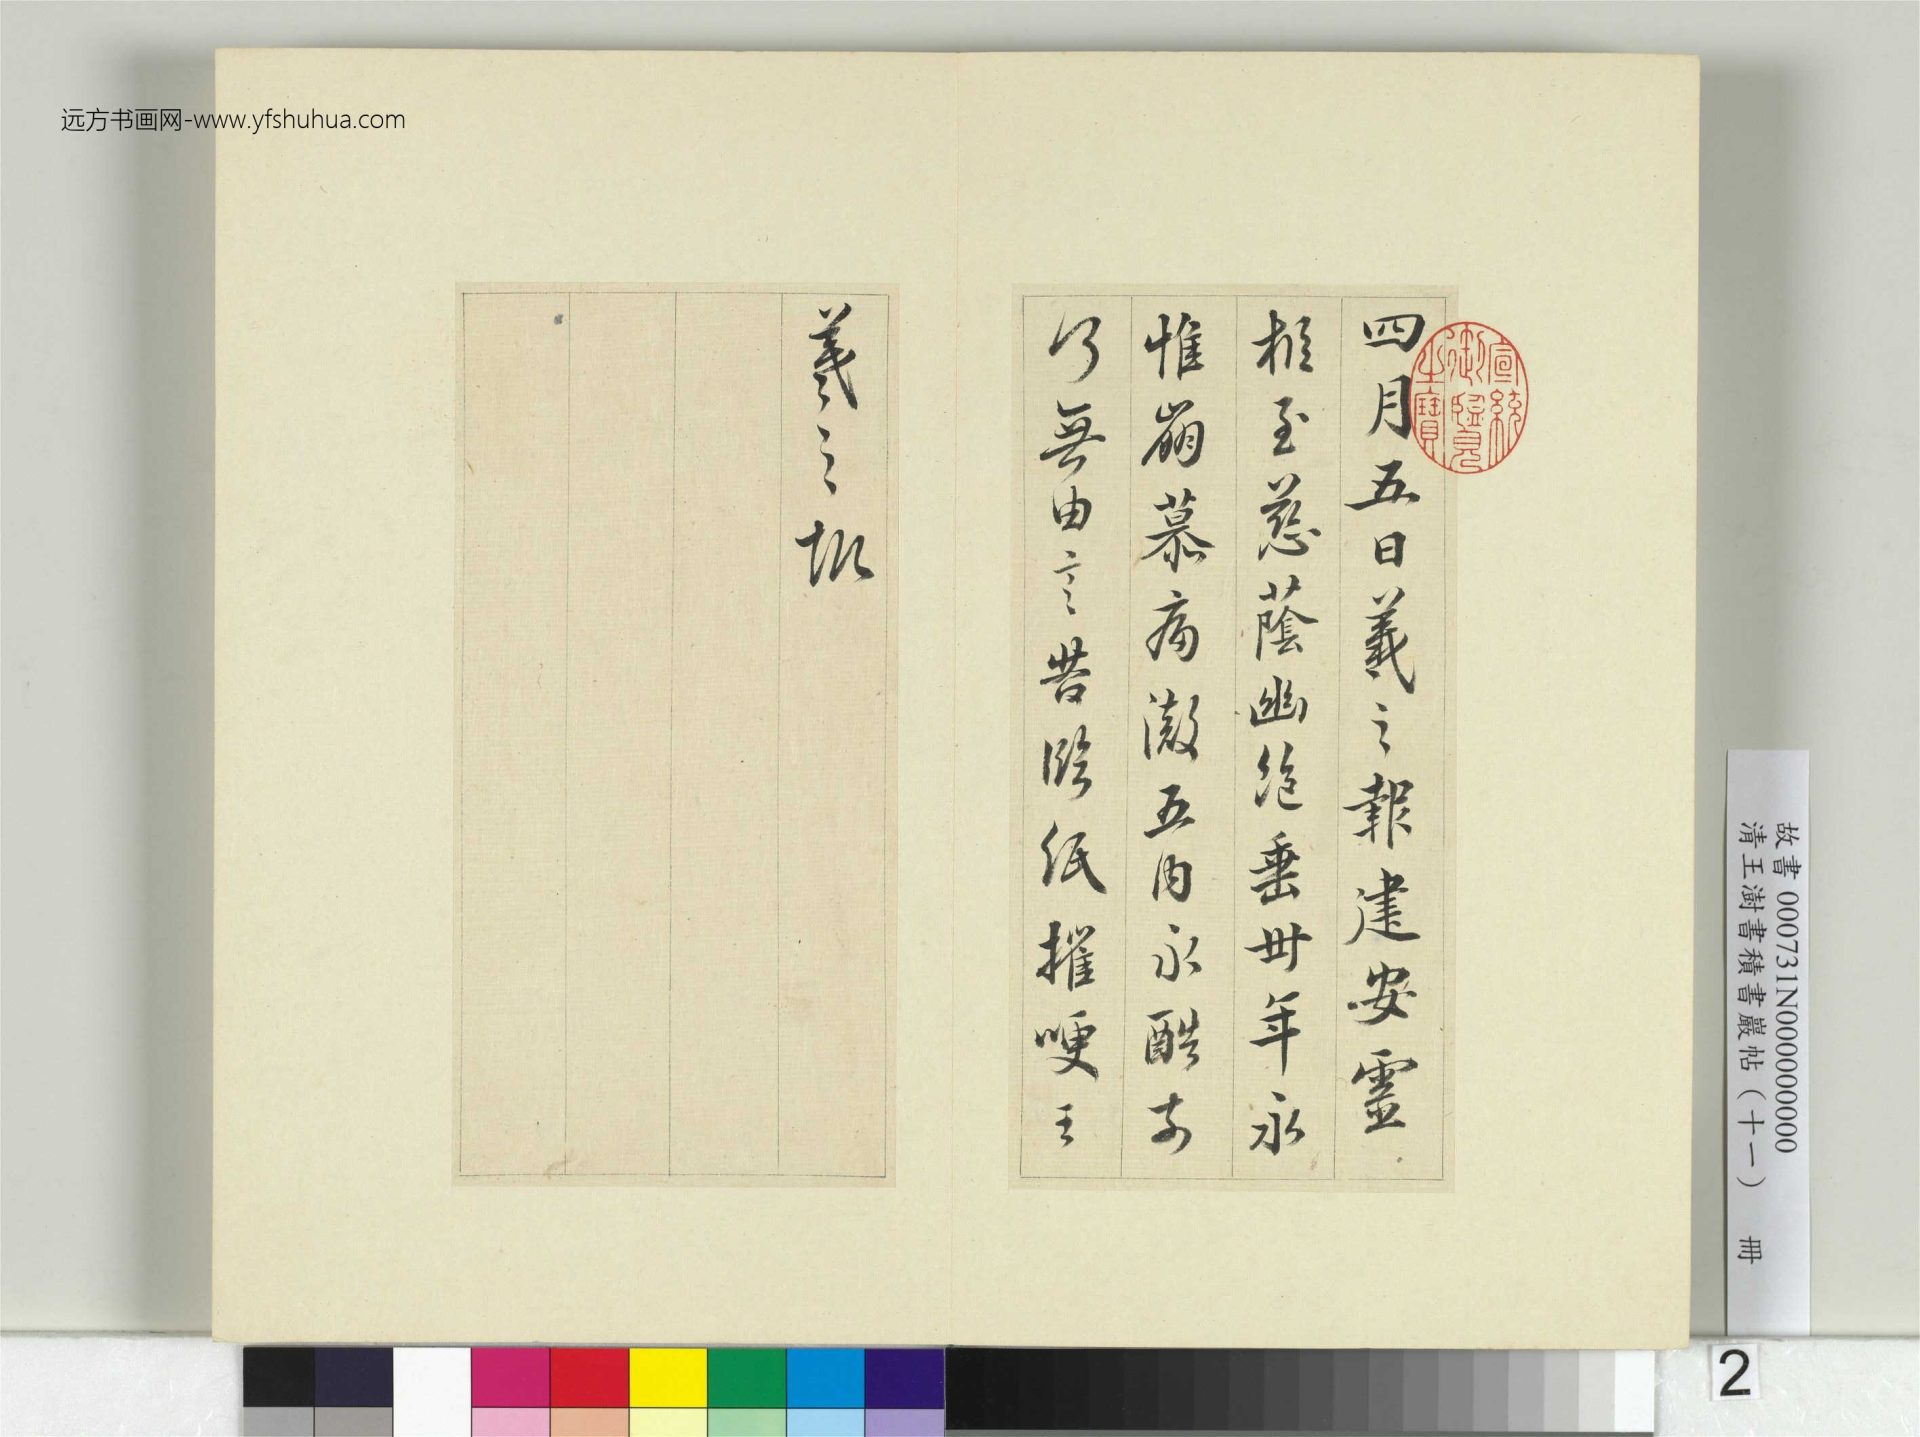 远方书画网-www.yfshuhua.com
四月五日羲之報建安靈
柩至慈蔭幽絶垂卅年永
惟崩慕痛徹五内永酷奈
何無由言告臨紙摧哽王
羲之頓
宣統御覽之寶
故書 000731N000000000
清王澍書積書巖帖(十一) 冊
2